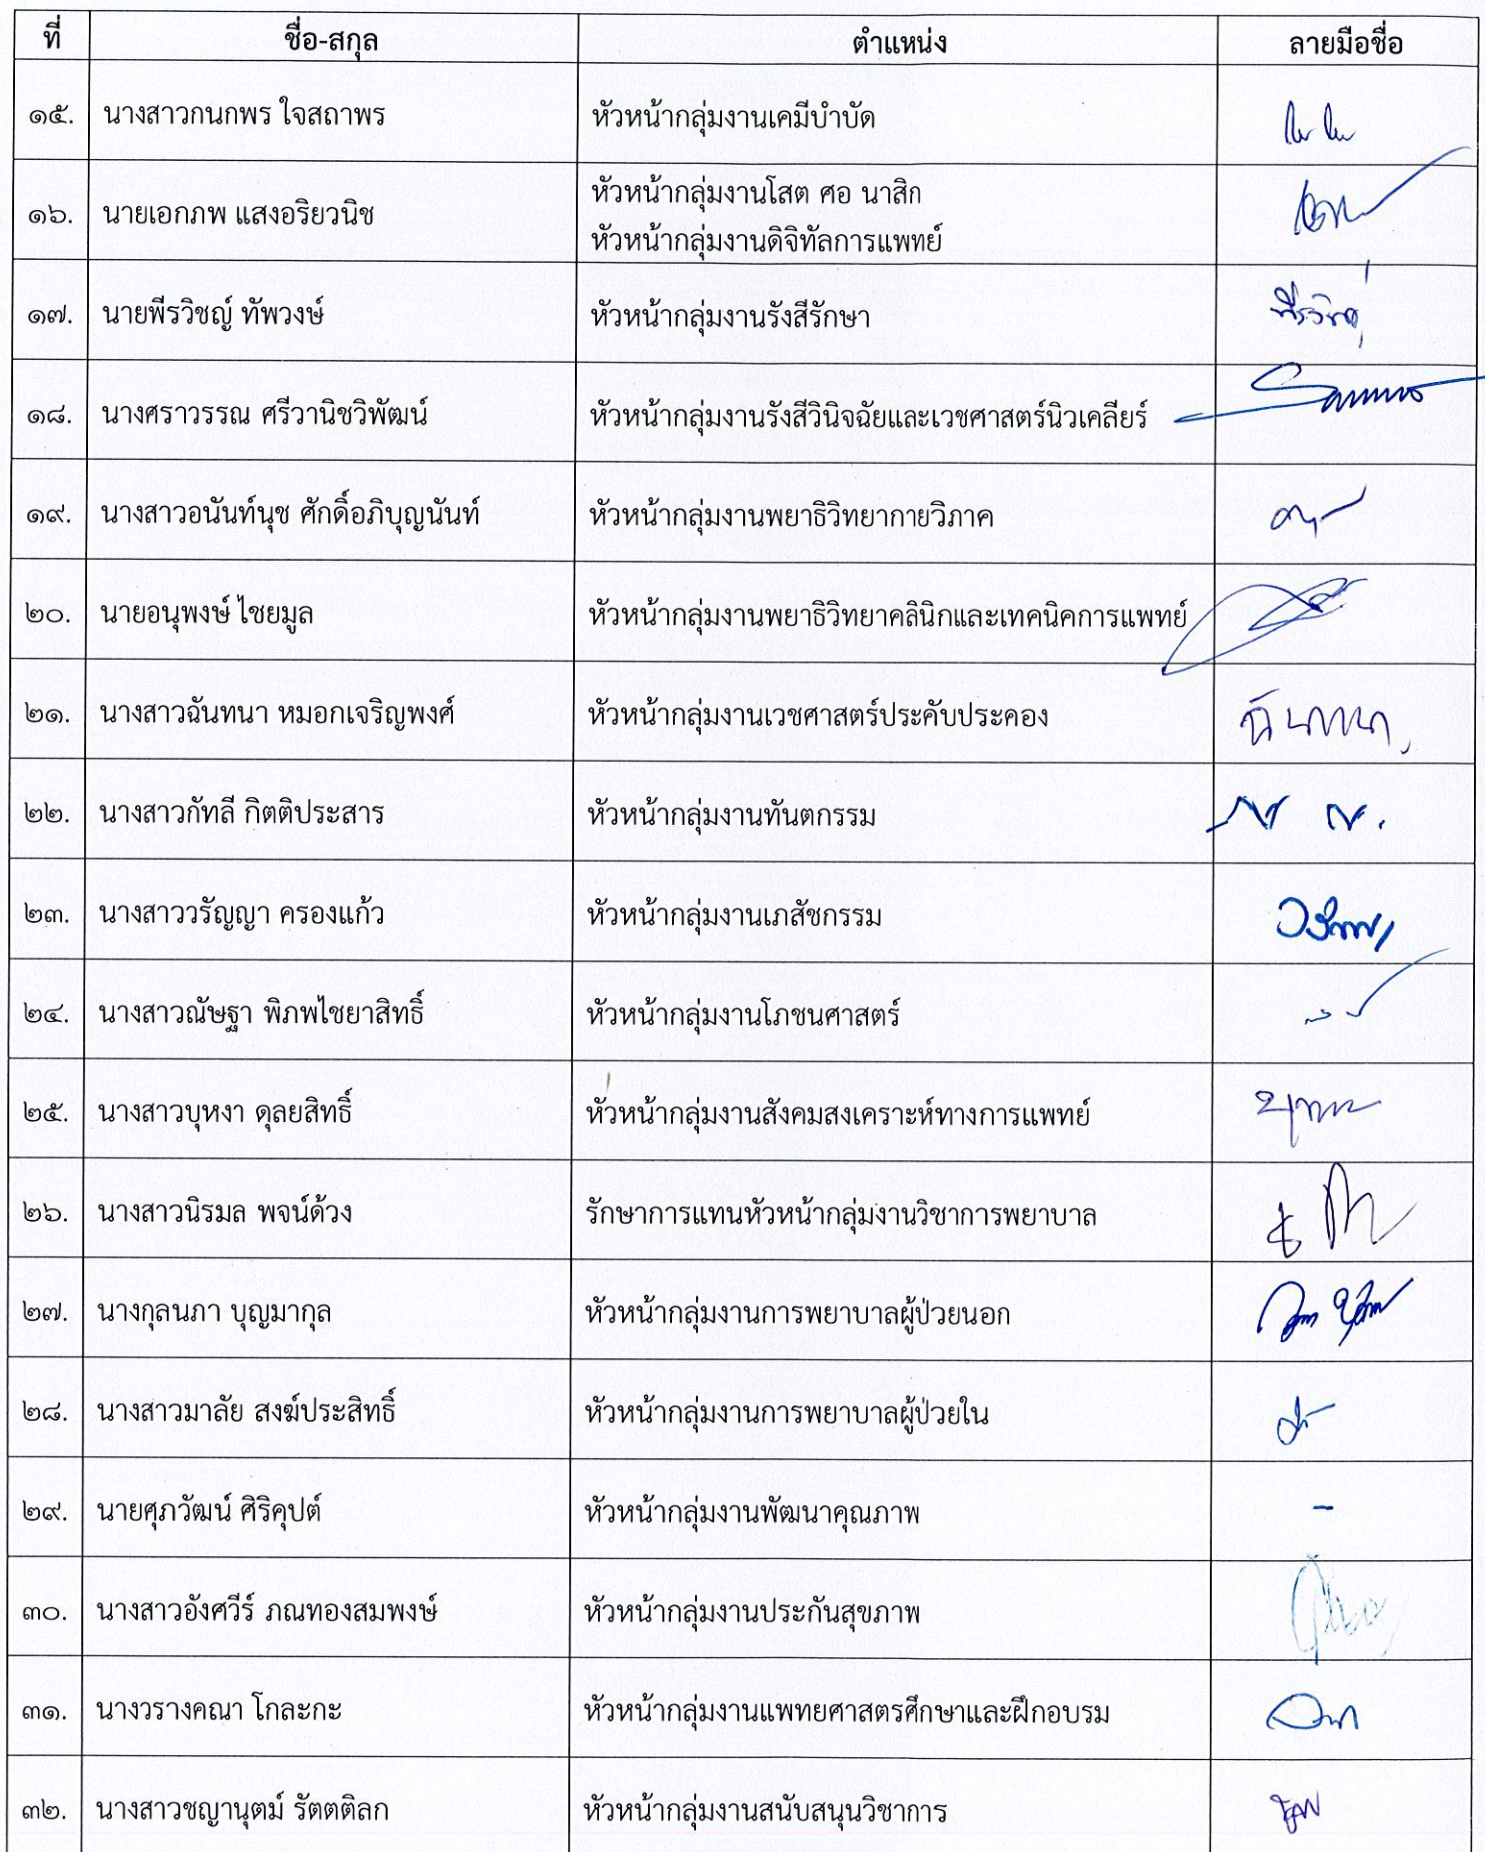 ที่ ชื่อ-สกุล ตำแหน่ง ลายมือชื่อ
๑๕. นางสาวกนกพร ใจสถาพร หัวหน้ากลุ่มงานเคมีบำบัด
๑๖. นายเอกภพ แสงอริยวนิช หัวหน้ากลุ่มงานโสต ศอ นาสิก
หัวหน้ากลุ่มงานดิจิทัลการแพทย์
๑๗. นายพีรวิชญ์ ทัพวงษ์ หัวหน้ากลุ่มงานรังสีรักษา พีรวิชญ์
๑๘. นางศราวรรณ ศรีวานิชวิพัฒน์ หัวหน้ากลุ่มงานรังสีวินิจฉัยและเวชศาสตร์นิวเคลียร์
๑๙. นางสาวอนันท์นุช ศักดิ์อภิบุญนันท์ หัวหน้ากลุ่มงานพยาธิวิทยากายวิภาค
๒๐. นายอนุพงษ์ ไชยมูล หัวหน้ากลุ่มงานพยาธิวิทยาคลินิกและเทคนิคการแพทย์
๒๑. นางสาวฉันทนา หมอกเจริญพงศ์ หัวหน้ากลุ่มงานเวชศาสตร์ประคับประคอง ฉันทนา
๒๒. นางสาวกัทลี กิตติประสาร หัวหน้ากลุ่มงานทันตกรรม
๒๓. นางสาววรัญญา ครองแก้ว หัวหน้ากลุ่มงานเภสัชกรรม
๒๔. นางสาวณัษฐา พิภพไชยาสิทธิ์ หัวหน้ากลุ่มงานโภชนศาสตร์
๒๕. นางสาวบุหงา ดุลยสิทธิ์ หัวหน้ากลุ่มงานสังคมสงเคราะห์ทางการแพทย์
๒๖. นางสาวนิรมล พจน์ด้วง รักษาการแทนหัวหน้ากลุ่มงานวิชาการพยาบาล
๒๗. นางกุลนภา บุญมากุล หัวหน้ากลุ่มงานการพยาบาลผู้ป่วยนอก
๒๘. นางสาวมาลัย สงฆ์ประสิทธิ์ หัวหน้ากลุ่มงานการพยาบาลผู้ป่วยใน
๒๙. นายศุภวัฒน์ ศิริคุปต์ หัวหน้ากลุ่มงานพัฒนาคุณภาพ -
๓๐. นางสาวอังศวีร์ ภณทองสมพงษ์ หัวหน้ากลุ่มงานประกันสุขภาพ
๓๑. นางวรางคณา โกละกะ หัวหน้ากลุ่มงานแพทยศาสตรศึกษาและฝึกอบรม
๓๒. นางสาวชญานุตม์ รัตตติลก หัวหน้ากลุ่มงานสนับสนุนวิชาการ